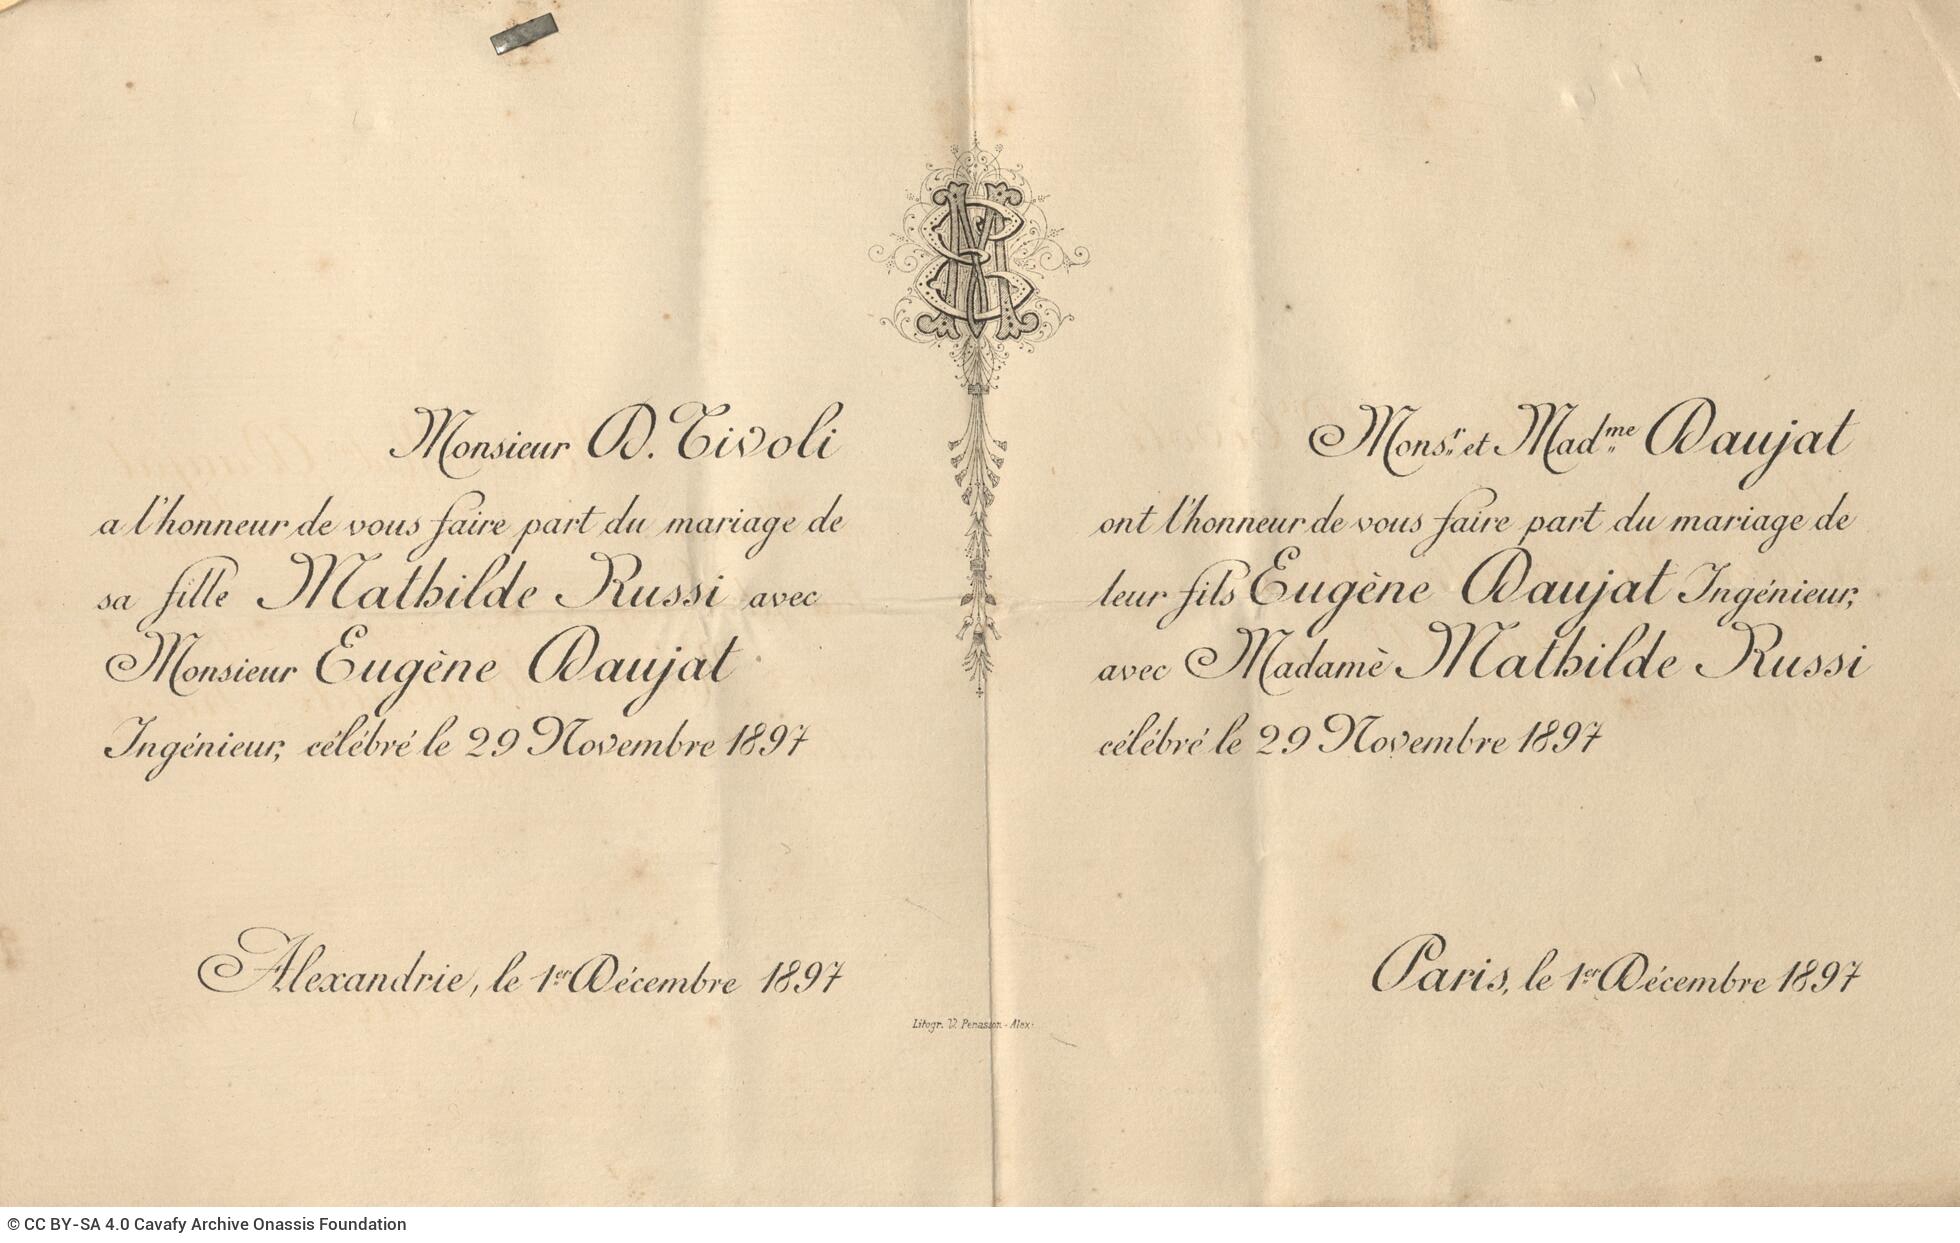 Monsieur D. Tivoli
a l'honneur de vous faire part du mariage de
sa fille Mathilde Russi avec
Monsieur Eugène Daujat
Ingénieur, célébré le 29 Novembre 1897
Alexandrie, le 1er Décembre 1897
Monsr et Madme Daujat
ont l'honneur de vous faire part du mariage de
leur fils Eugène Daujat Ingénieur,
avec Madamè Mathilde Russi
célébré le 29 Novembre 1897
Paris, le 1er Décembre 1897
Litogr. V. Penasson - Alex.
© CC BY-SA 4.0 Cavafy Archive Onassis Foundation